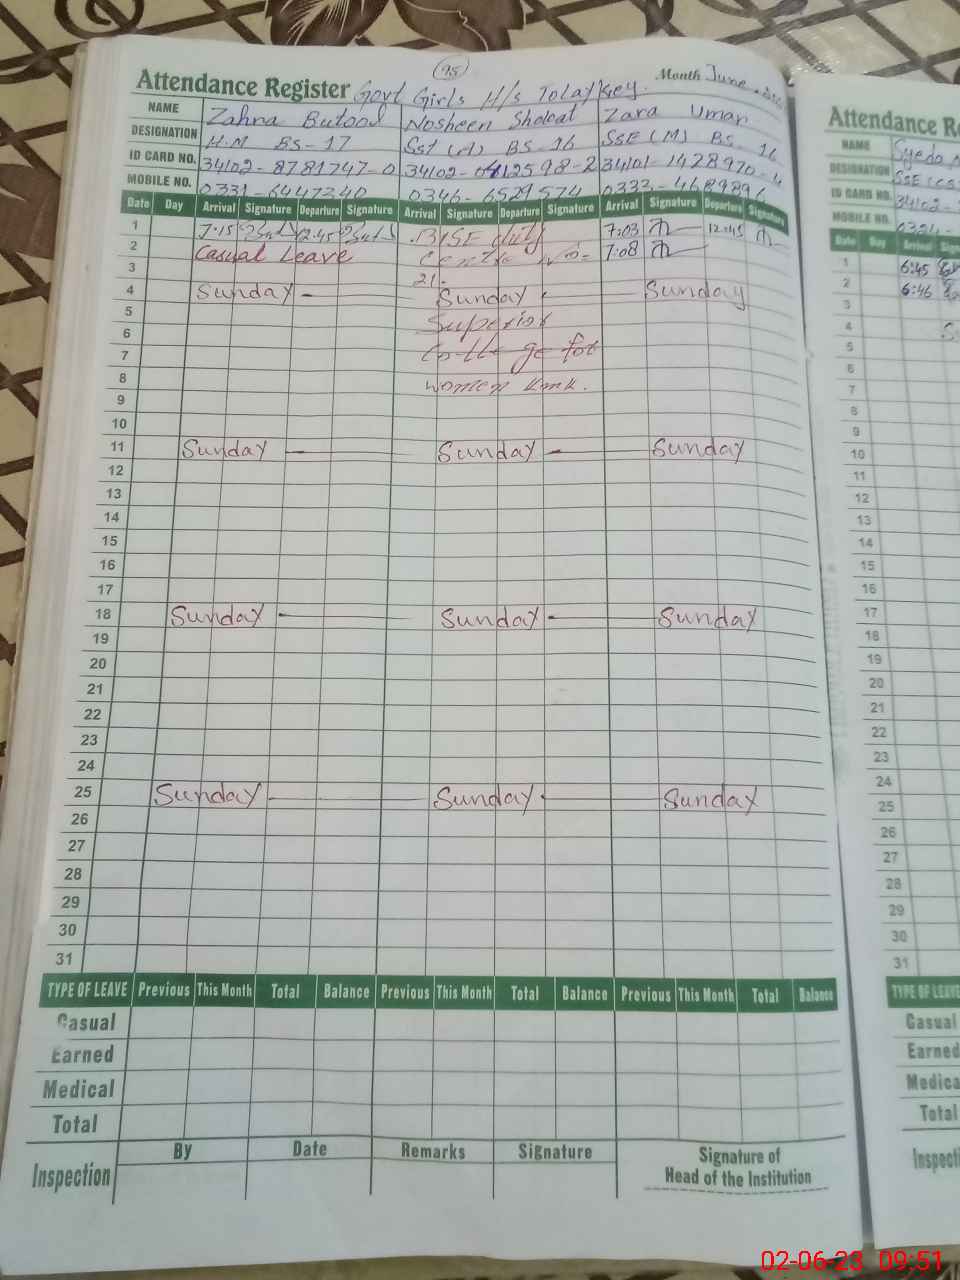 75
Attendance Register Govt Girls H/s Tolaykey. Month June
NAME Zahra Butool Nosheen Shokat Zara Umar
DESIGNATION H.M BS-17 SST (A) BS-16 SSE (M) BS-16
ID CARD NO. 34102-8781747-0 34102-0412598-2 34101-1428970-4
MOBILE NO. 0331-6447340 0346-6529574 0333-4689896
Date Day Arrival Signature Departure Signature Arrival Signature Departure Signature Arrival Signature Departure Signature
1 7:15 12:45 BISE duty 7:03 12:45
2 Casual Leave Centre No- 7:08
3 21-
4 Sunday Sunday Sunday
5 Superior
6 College for
7
8 women kmk.
9
10
11 Sunday Sunday Sunday
12
13
14
15
16
17
18 Sunday Sunday Sunday
19
20
21
22
23
24
25 Sunday Sunday Sunday
26
27
28
29
30
31
TYPE OF LEAVE Previous This Month Total Balance Previous This Month Total Balance Previous This Month Total Balance
Casual
Earned
Medical
Total
Inspection By Date Remarks Signature Signature of
Head of the Institution
Attendance Re
NAME Syeda
DESIGNATION SSE
ID CARD NO. 34102-
MOBILE NO. 0324-
Date Day Arrival
1 6:45
2 6:46
3
4 S
5
6
7
8
9
10
11
12
13
14
15
16
17
18
19
20
21
22
23
24
25
26
27
28
29
30
31
TYPE OF LEAVE
Casual
Earned
Medica
Total
Inspecti
02-06-23 09:51